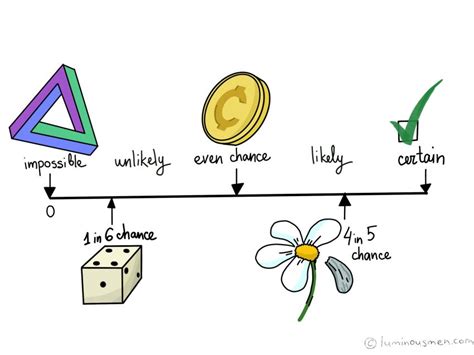 impossible
unlikely
even chance
likely
certain
0
1 in 6 chance
4 in 5
chance
© luminousmen.com